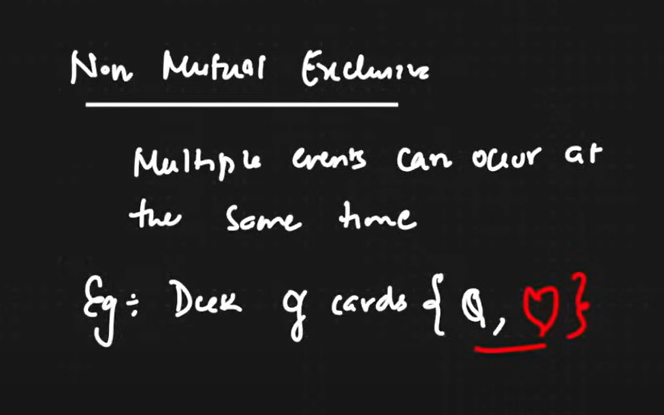 Non Mutual Exclusive
Multiple events can occur at
the same time
Eg:- Deck of cards {Q, ♡}